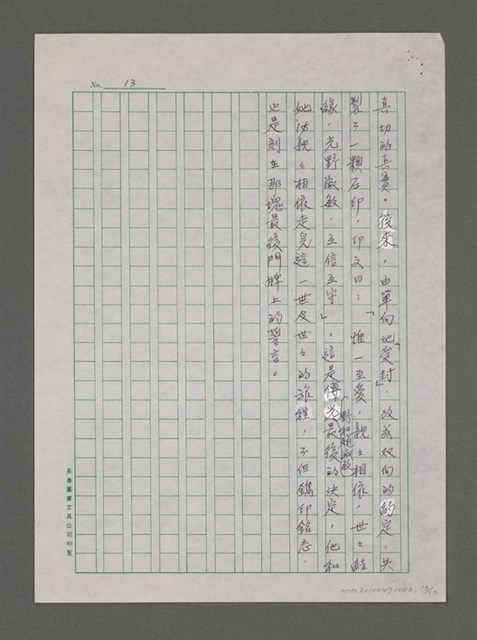 No. 13
真切的真實。後來,由單向地「受封」,改成双向的約定,共
製了一顆石印,印文曰:「惟一至愛,親親相依,世世結
緣,光野淑敏,互信互守」。這是傅光最後的决定,他和
她決親親相依走完這一世及世世的旅程,不但鐫印銘志,
也是刻在那塊最後門牌上的誓言。
長春圖書文具公司印製